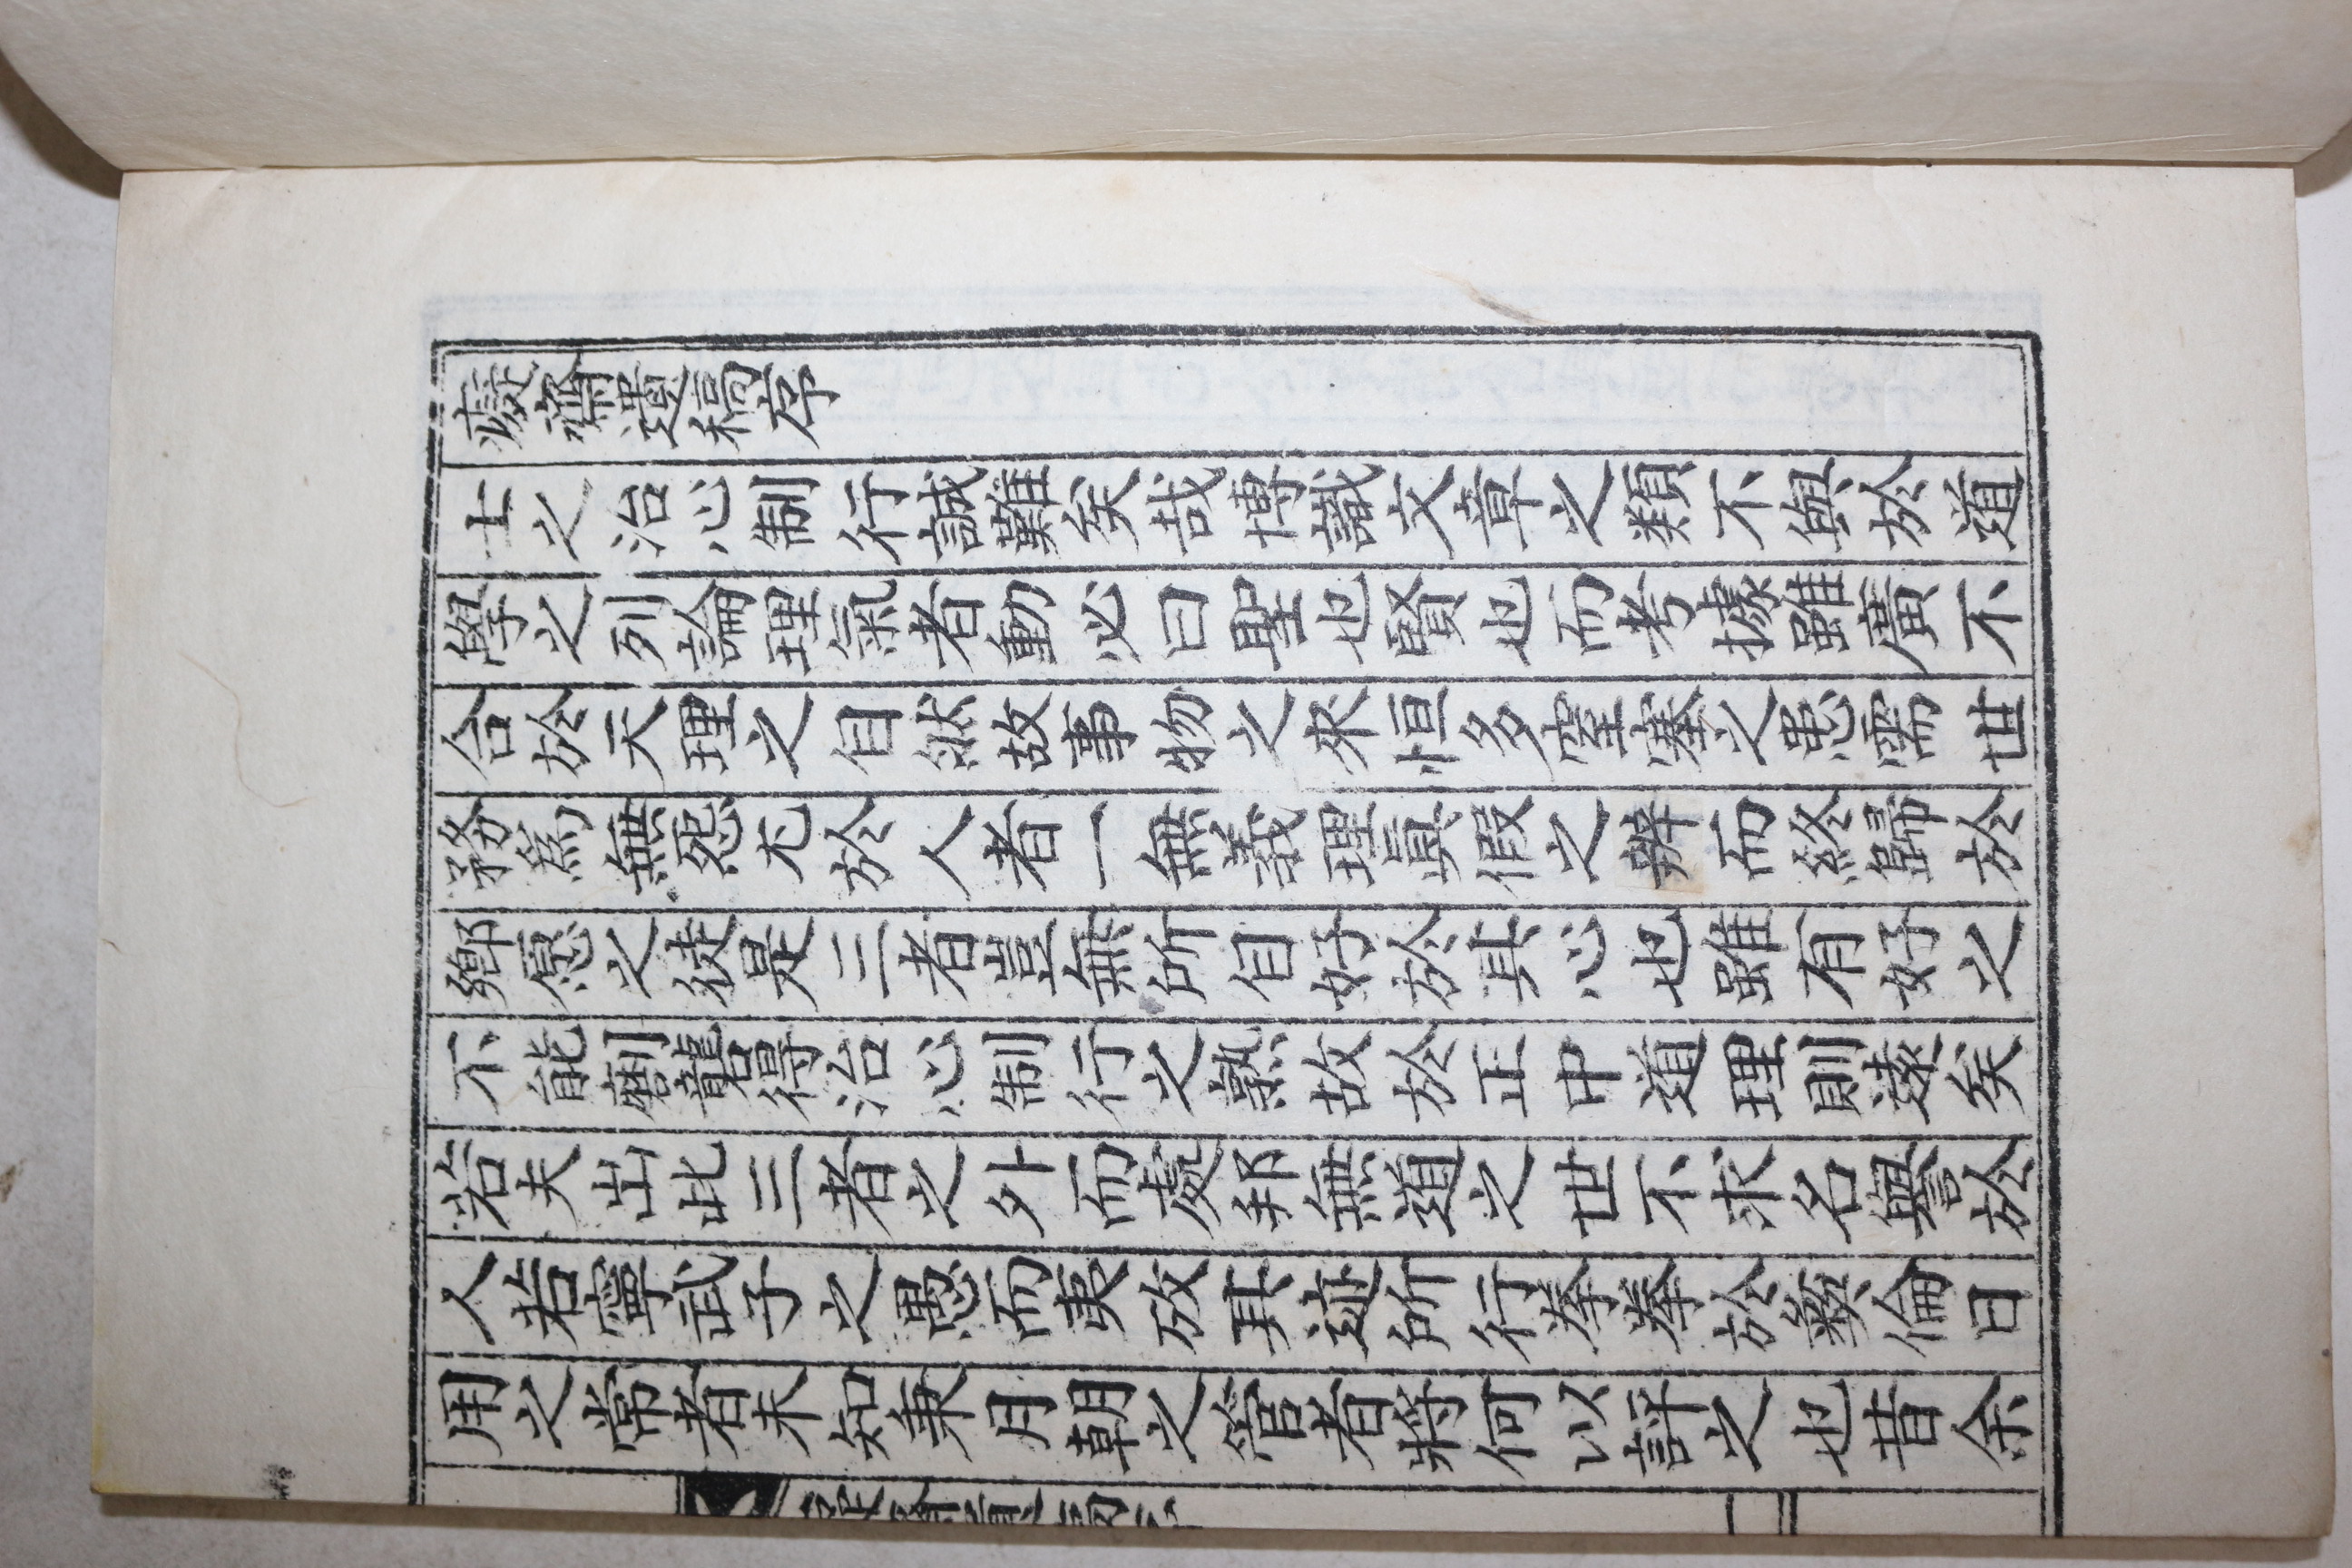 癡齋遺稿序
士之治心制行誠難矣哉博識文章之類不與於道
學之列論理氣者動必曰聖也賢也而考據雖廣不
合於天理之自然故事物之來恒多窒塞之患需世
務爲無怨尤於人者一無義理眞假之辨而終歸於
鄉愿之徒是三者豈無所自好於其心也雖有好之
不能劘礱得治心制行之熟故於正中道理則遠矣
若夫出此三者之外而處邦無道之世不求名譽於
人若寧武子之愚而夷攷其迹所行拳拳於彛倫日
用之常者未知秉月朝之管者將何以評之也昔余
癡齋遺稿序
一